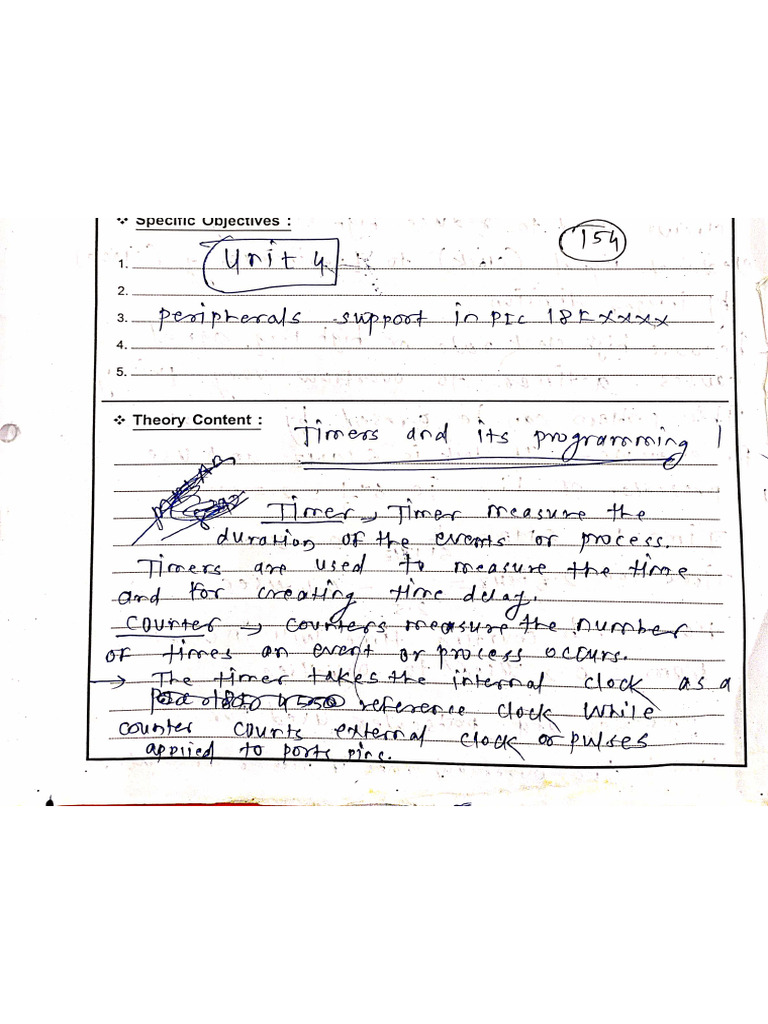 ❖ Specific Objectives :
154
1. Unit 4
2.
3. peripherals support in PIC 18Fxxxx
4.
5.
❖ Theory Content : Timers and its programming
Timer → Timer measure the
duration of the events or process.
Timers are used to measure the time
and for creating time delay.
Counter → Counters measure the number
of times an event or process occurs.
→ The timer takes the internal clock as a
reference clock while
counter counts external clock or pulses
applied to ports pins.